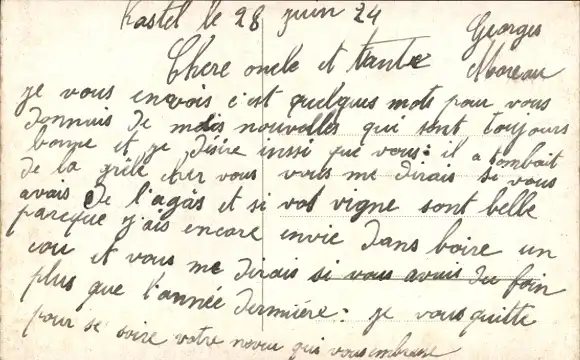 Kastel le 28 juin 24
Georges
Moreau
Chere oncle et tante
je vous envois c'est quelques mots pour vous
donnais de mes nouvelles qui sont toujours
bonne et je désire inssi que vous: il a tombait
de la grêle cher vous vous me dirais si vous
avais de l'agâs et si vot vigne sont belle
parceque j'ais encore envie dans boire un
cou et vous me dirais si vous avais du foin
plus que l'année dernniére: je vous quitte
pour se soire votre neveu qui vous embrasse